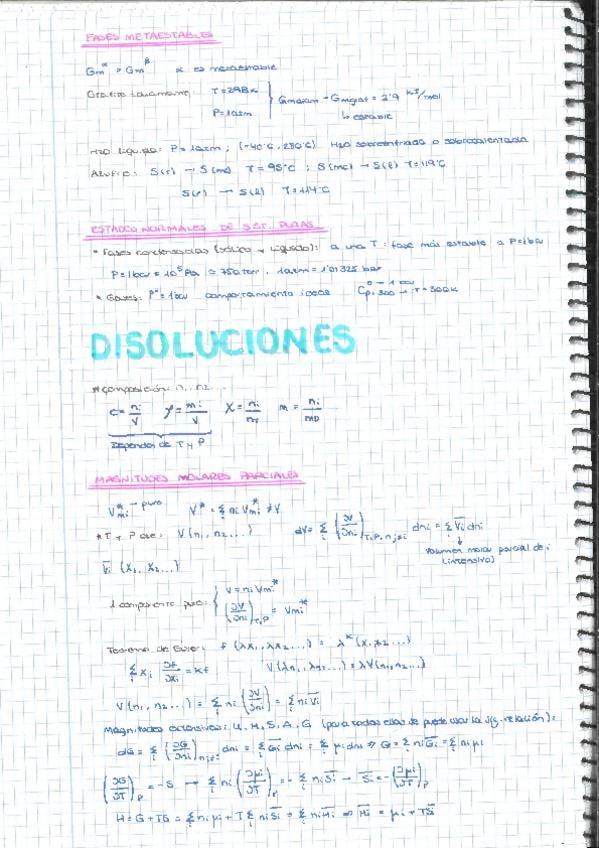 FASES METAESTABLES
Gm^α > Gm^β   α es metaestable
T = 298K
P = 1atm
Gmdiam - Gmgraf = 2'9 kJ/mol
↳ estable
H2O líquida: P = 1atm ; (-40°C, 280°C) H2O sobreenfriada o sobrecalentada
Azufre: S(r) → S(mc) T = 95°C ; S(mc) → S(l) T = 119°C
S(r) → S(l) T = 114°C
ESTADOS NORMALES DE SIST. PUROS
• Fases condensadas (sólido y líquido): a una T: fase más estable a P = 1bar
P = 1bar = 10^5 Pa ≃ 750 torr. 1atm = 1'01325 bar
• Gases: P° = 1bar comportamiento ideal C°p,300 → 1 bar → T = 300K
DISOLUCIONES
* Composición: n1, n2...
c = ni/V   ρ = mi/V   X = ni/nT   m = ni/mD
Dependen de T y P
MAGNITUDES MOLARES PARCIALES
V*mi → puro   V* = Σ ni V*mi ≠ V
* T y P ctes: V(n1, n2...)   dV = Σ (∂V/∂ni)T,P,nj≠i dni = Σ V̄i dni
↓
volumen molar parcial de i
(intensivo)
V̄i (X1, X2...)
1 componente puro: { V = ni Vmi*
(∂V/∂ni)T,P = Vmi*
Teorema de Euler: f(λx1, λx2...) = λ^k (x1, x2...)
Σ xi ∂f/∂xi = kf   V(λn1, λn2...) = λV(n1, n2...)
V(n1, n2...) = Σ ni (∂V/∂ni) = Σ ni V̄i
Magnitudes extensivas: U, H, S, A, G (para todas ellas se puede usar la sig. relación):
dG = Σ (∂G/∂ni)nj≠i dni = Σ Ḡi dni = Σ μi dni ⇒ G = Σ ni Ḡi = Σ ni μi
(∂G/∂T)P = -S → Σ ni (∂μi/∂T)P = -Σ ni S̄i → S̄i = -(∂μi/∂T)P
H = G + TS = Σ ni μi + T Σ ni S̄i = Σ ni H̄i ⇒ H̄i = μi + TS̄i